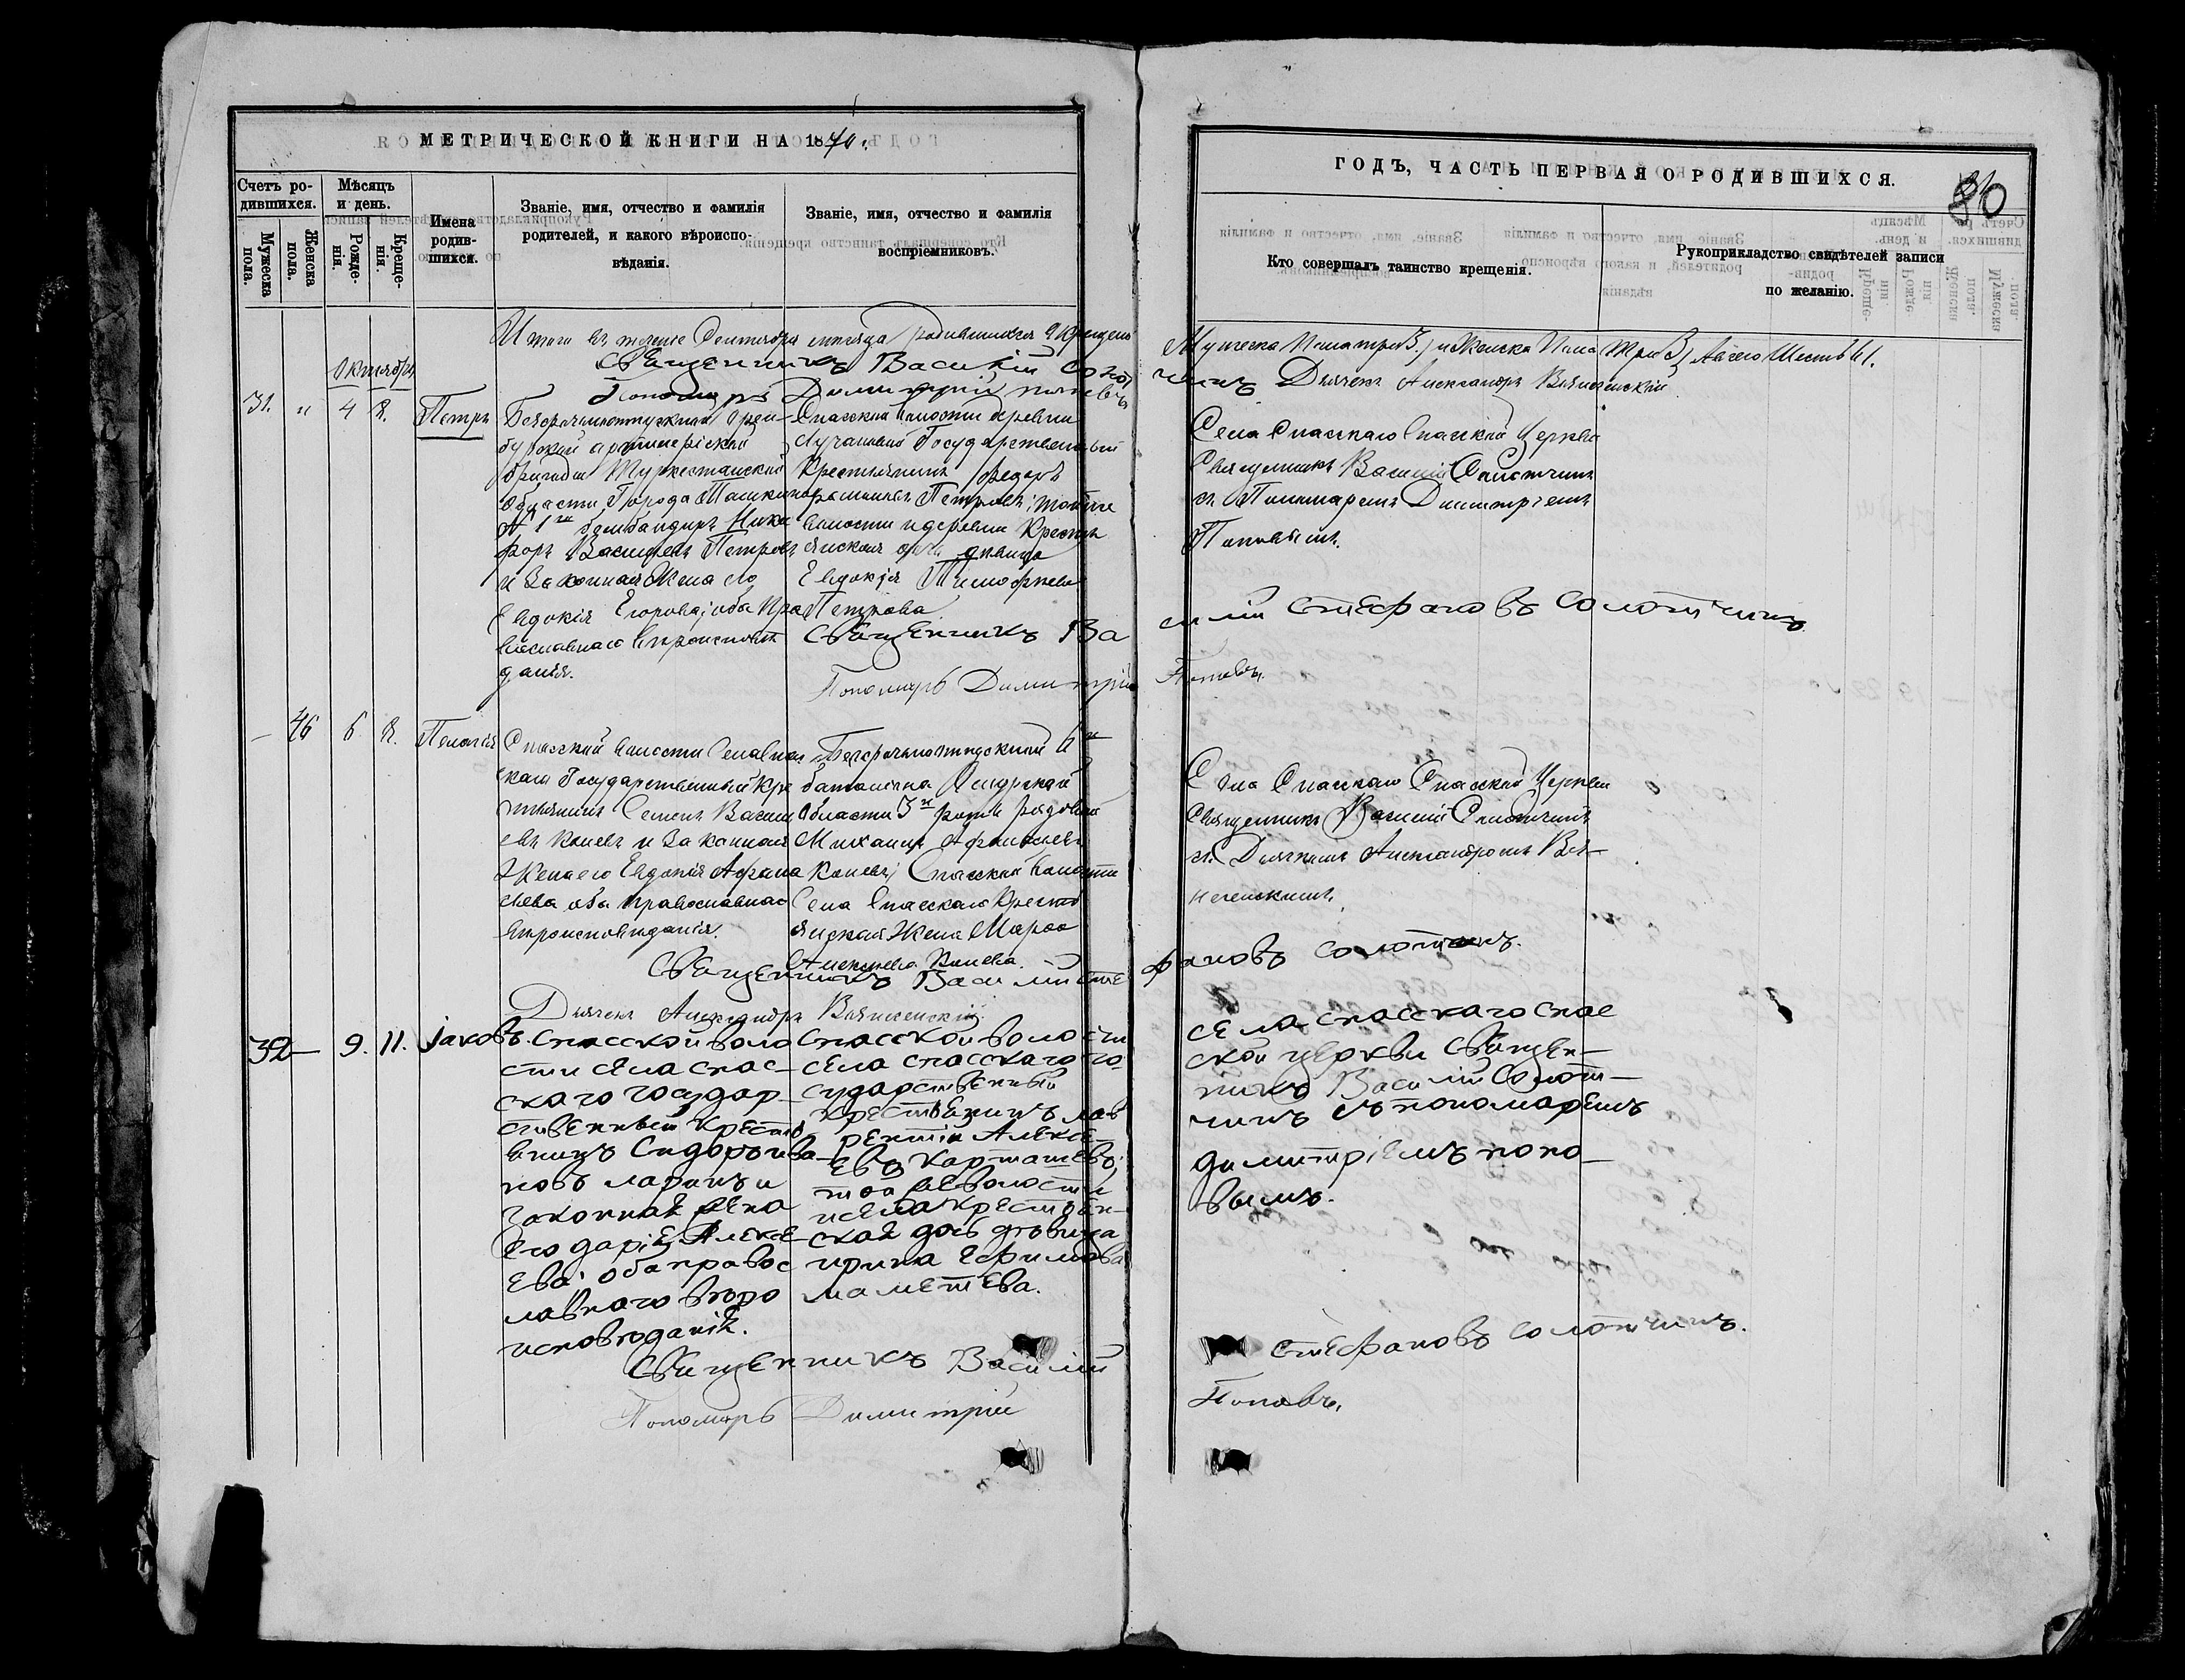 МЕТРИЧЕСКОЙ КНИГИ НА 1870.
Счетъ ро-
дившихся.
Мужеска
пола.
Женска
пола.
Мѣсяцъ
и день.
Рожде-
нія.
Креще-
нія.
Имена
родив-
шихся.
Званіе, имя, отчество и фамилія
родителей, и какого вѣроиспо-
вѣданія.
Званіе, имя, отчество и фамилія
воспріемниковъ.
ГОДЪ, ЧАСТЬ ПЕРВАЯ О РОДИВШИХСЯ.
80
Кто совершалъ таинство крещенія.
Рукоприкладство свидѣтелей записи
по желанію.
Итого въ Сентября родившихся и крещено
Мужеска Пола три 3, и Женска Пола три 3, Шесть 6.
Священникъ Василій Солот
чинъ Дьячекъ Александръ
Пономарь Димитрій Поповъ
Октябрь
31. " 4 8. Петръ
Безсрочноотпускный Орен-
бургской артиллерійской
бригады Туркестанской
Области Города
бомбандиръ Ники
форъ Васильевъ Петровъ
и Законная Жена его
Евдокія Егорова, оба Пра
вославнаго вѣроисповѣ
данія.
Спасской Волости деревни
Государственный
Крестьянинъ Федоръ
Петровъ; той же
волости и деревни Крестья
янская дочь дѣвица
Евдокія Тимофеева
Петрова
Села Спасскаго Спасской Церкви
Священникъ Василій Солотчинъ
съ Пономаремъ Димитріемъ
Поповымъ.
Священникъ Ва
силій Стефановъ Солотчинъ
Пономарь Димитрій
Поповъ.
— 46 6. 8. Пелагія
Спасской волости Села Спас
скаго Государственный Кре
стьянинъ Семенъ Василь
евъ Коневъ и Законная
Жена его Евдокія Афана
сьева оба Православнаго
вѣроисповѣданія.
Безсрочноотпускный
баталіона
Области 3й роты рядовой
Михаилъ Афанасьевъ
Коневъ; Спасской волости
Села Спасскаго Крестья
янская Жена Марфа
Алексѣева Конева.
Села Спасскаго Спасской Церкви
Священникъ Василій Солотчинъ
съ Дьячкомъ Александромъ
Священникъ Василій Сте
фановъ Солотчинъ.
Дьячекъ Александръ
32 — 9. 11. Іаковъ.
Спасской воло
сти села Спас-
скаго государ-
ственный Кресть
янинъ Сидоръ Ива
новъ Ларинъ и
законная жена
его Дарія Алексѣ
ева; оба правос
лавнаго вѣро
исповѣданія.
Спасской волости
села Спасскаго го-
сударственный
Крестьянинъ Лав
рентій Алексѣ-
евъ Карташевъ;
той же волости
и села Крестьян-
ская дочь дѣвица
Ирина Ефимова
Маметева.
села Спасскаго Спас
ской церкви Священ-
никъ Василій Солот-
чинъ съ пономаремъ
Димитріемъ Попо-
вымъ.
Священникъ Василій
Стефановъ Солотчинъ.
Пономарь Димитрій
Поповъ.